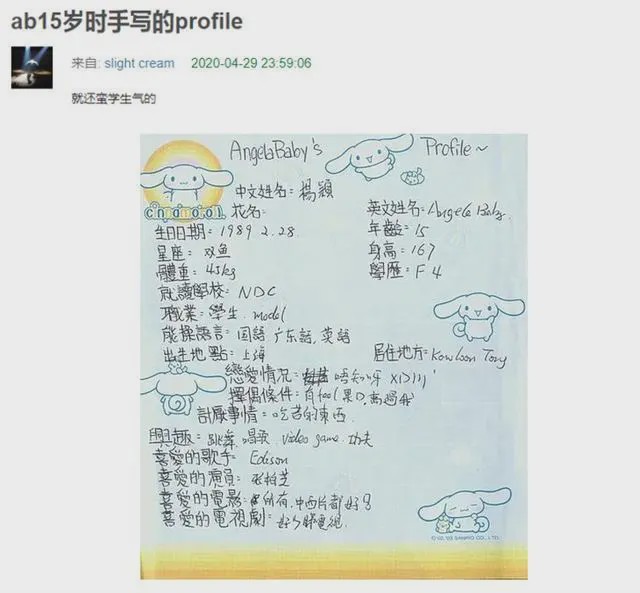 ab15岁时手写的profile
来自: slight cream 2020-04-29 23:59:06
就还蛮学生气的
AngelaBaby's Profile~
中文姓名=楊穎 英文姓名=Angela Baby.
cinnamoroll 花名=
生日日期=1989.2.28. 年齡=15
星座=双鱼 身高=167
體重=45kg 學歷=F4
就讀學校=NDC
職業=學生. model
能操語言=国語,广东話,英語
出生地點=上海 居住地方=Kowloon Tong
戀愛情況= 唔知呀 XD)))'
擇偶條件=有feel果D,高過我
討厭事情=吃苦的東西.
興趣=跳舞.唱歌.video game.功夫
喜愛的歌手=Edison
喜愛的演員=张柏芝
喜愛的電影=所有,中西片都好
喜愛的電視劇=好少睇電視.
SANRIO CO., LTD.